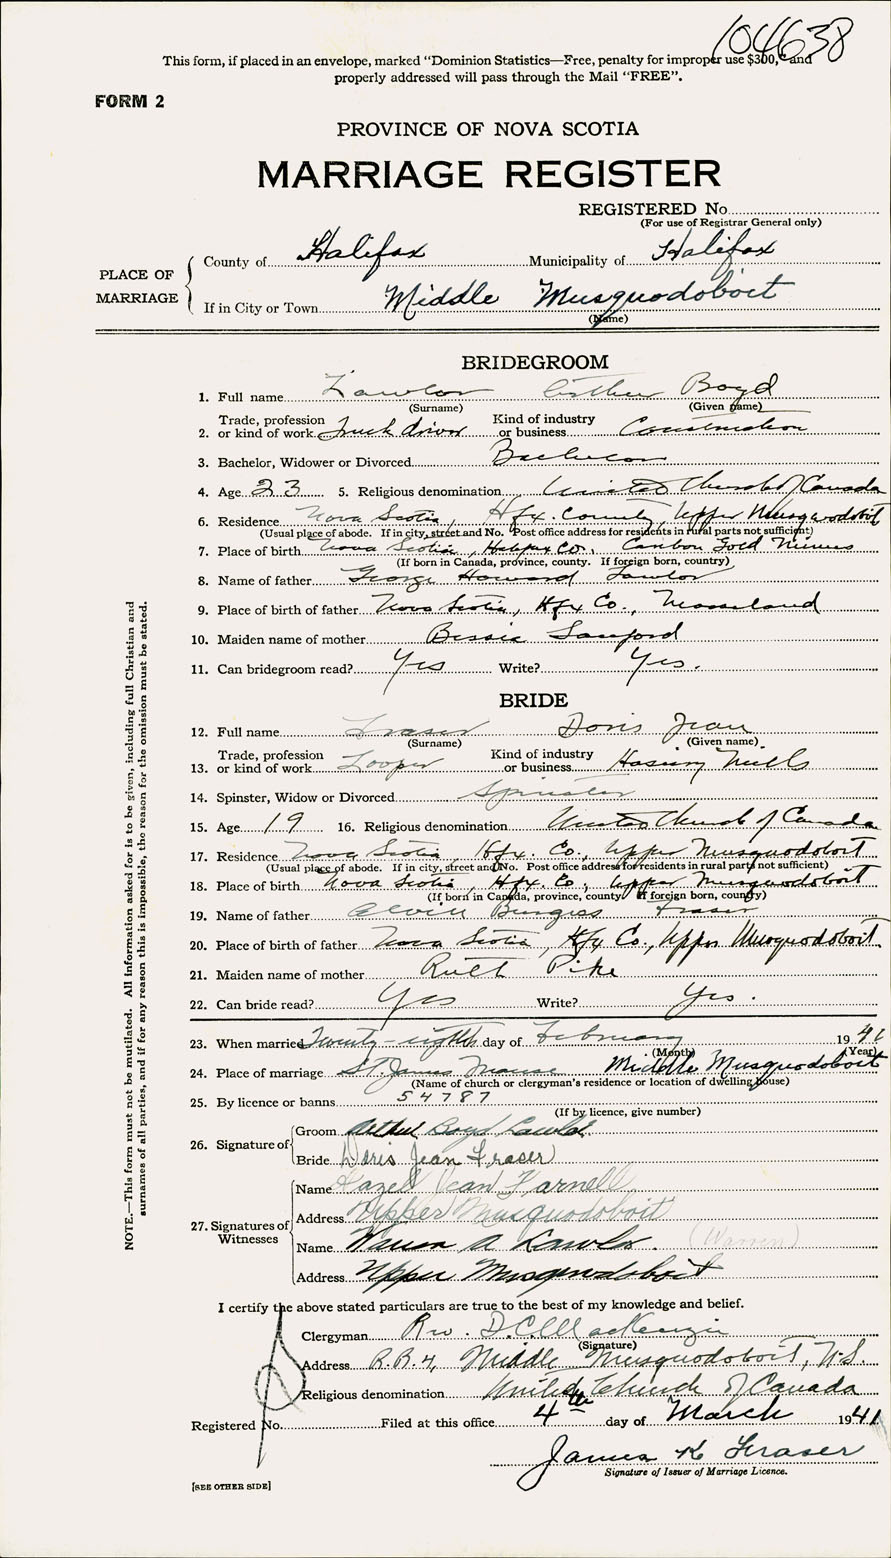 104638
This form, if placed in an envelope, marked “Dominion Statistics—Free, penalty for improper use $300,” and
properly addressed will pass through the Mail “FREE”.
FORM 2
PROVINCE OF NOVA SCOTIA
MARRIAGE REGISTER
REGISTERED No.
(For use of Registrar General only)
PLACE OF MARRIAGE
County of Halifax Municipality of Halifax
If in City or Town Middle Musquodoboit
(Name)
BRIDEGROOM
1. Full name Lawlor Arthur Boyd
(Surname) (Given name)
2. Trade, profession or kind of work Truck driver Kind of industry or business Construction
3. Bachelor, Widower or Divorced Bachelor
4. Age 23 5. Religious denomination United Church of Canada
6. Residence Nova Scotia, Hfx. County, Upper Musquodoboit
(Usual place of abode. If in city, street and No. Post office address for residents in rural parts not sufficient)
7. Place of birth Nova Scotia, Halifax Co., Caribou Gold Mines
(If born in Canada, province, county. If foreign born, country)
8. Name of father George Howard Lawlor
9. Place of birth of father Nova Scotia, Hfx Co., Mooseland
10. Maiden name of mother Bessie Sanford
11. Can bridegroom read? Yes Write? Yes.
BRIDE
12. Full name Fraser Doris Jean
(Surname) (Given name)
13. Trade, profession or kind of work Looper Kind of industry or business Hosiery Mills
14. Spinster, Widow or Divorced Spinster
15. Age 19 16. Religious denomination United Church of Canada
17. Residence Nova Scotia, Hfx. Co., Upper Musquodoboit
(Usual place of abode. If in city, street and No. Post office address for residents in rural parts not sufficient)
18. Place of birth Nova Scotia, Hfx. Co., Upper Musquodoboit
(If born in Canada, province, county. If foreign born, country)
19. Name of father Alvin Burgess Fraser
20. Place of birth of father Nova Scotia, Hfx Co., Upper Musquodoboit.
21. Maiden name of mother Ruth Pike
22. Can bride read? Yes Write? Yes.
23. When married Twenty-eighth day of February 1941
(Month) (Year)
24. Place of marriage St. James Manse Middle Musquodoboit
(Name of church or clergyman's residence or location of dwelling house)
25. By licence or banns 54787
(If by licence, give number)
26. Signature of
Groom Arthur Boyd Lawlor.
Bride Doris Jean Fraser
27. Signatures of Witnesses
Name Hazel Jean Farnell
Address Upper Musquodoboit
Name Warren A Lawlor. (Warren)
Address Upper Musquodoboit
I certify the above stated particulars are true to the best of my knowledge and belief.
Clergyman Rev. D.C. MacKenzie
(Signature)
Address R.R.4, Middle Musquodoboit, N.S.
Religious denomination United Church of Canada
Registered No. Filed at this office 4th day of March 1941
James K Fraser
Signature of Issuer of Marriage Licence.
[SEE OTHER SIDE]
NOTE.—This form must not be mutilated. All information asked for is to be given, including full Christian and
surnames of all parties, and if for any reason this is impossible, the reason for the omission must be stated.